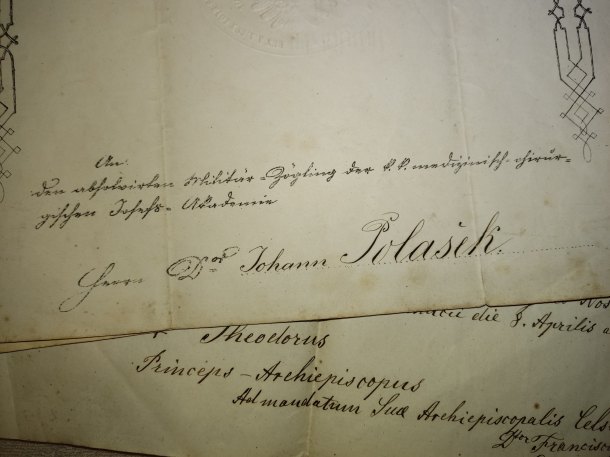 An
den absolvirten Militär-Zögling der k. k. medizinisch-chirur-
gischen Josefs-Akademie
Herrn Dor Johann Polašek.
die 8. Aprilis
Theodorus
Princeps - Archiepiscopus
Ad mandatum Suæ Archiepiscopalis Cels
Francisc